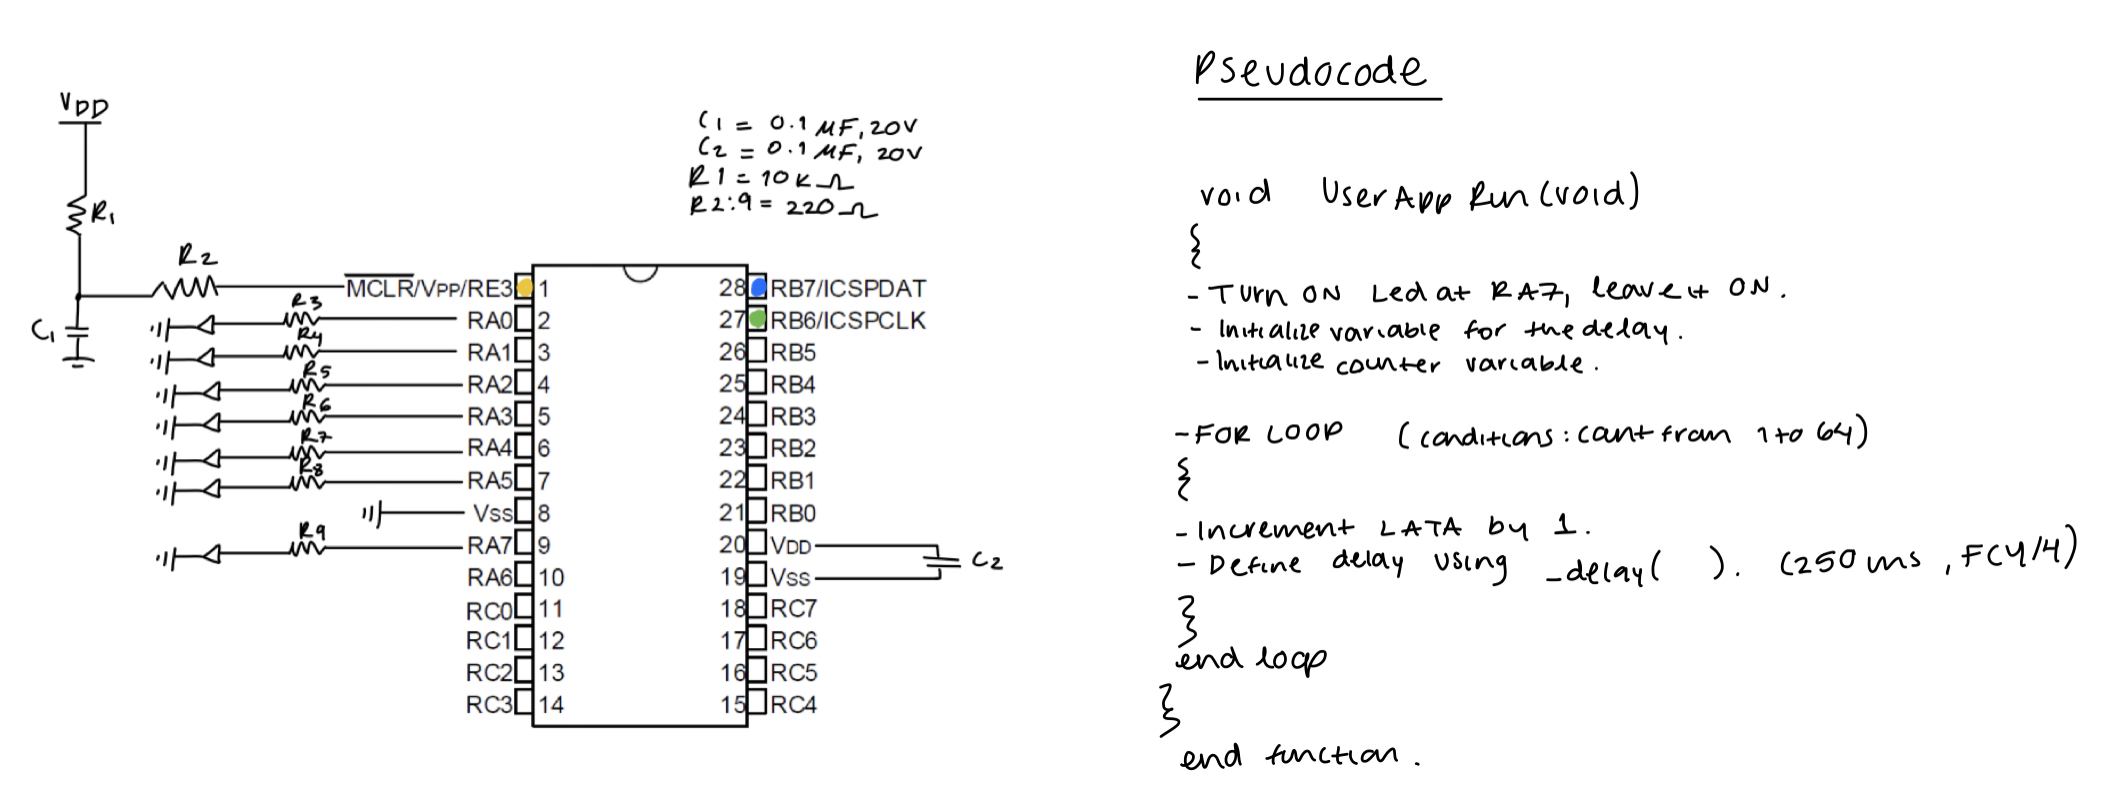 VDD
R1
C1
R2
R3
R4
R5
R6
R7
R8
R9
C1 = 0.1 MF, 20V
C2 = 0.1 MF, 20V
R1 = 10KΩ
R2:9 = 220Ω
MCLR/VPP/RE3 1
RA0 2
RA1 3
RA2 4
RA3 5
RA4 6
RA5 7
VSS 8
RA7 9
RA6 10
RC0 11
RC1 12
RC2 13
RC3 14
28 RB7/ICSPDAT
27 RB6/ICSPCLK
26 RB5
25 RB4
24 RB3
23 RB2
22 RB1
21 RB0
20 VDD
19 VSS
18 RC7
17 RC6
16 RC5
15 RC4
C2
Pseudocode
void UserApp Run(void)
{
- Turn ON Led at RA7, leave it ON.
- Initialize variable for the delay.
- Initialize counter variable.
- FOR LOOP (conditions: count from 1 to 64)
{
- Increment LATA by 1.
- Define delay using _delay( ). (250 ms, FCY/4)
}
end loop
}
end function.